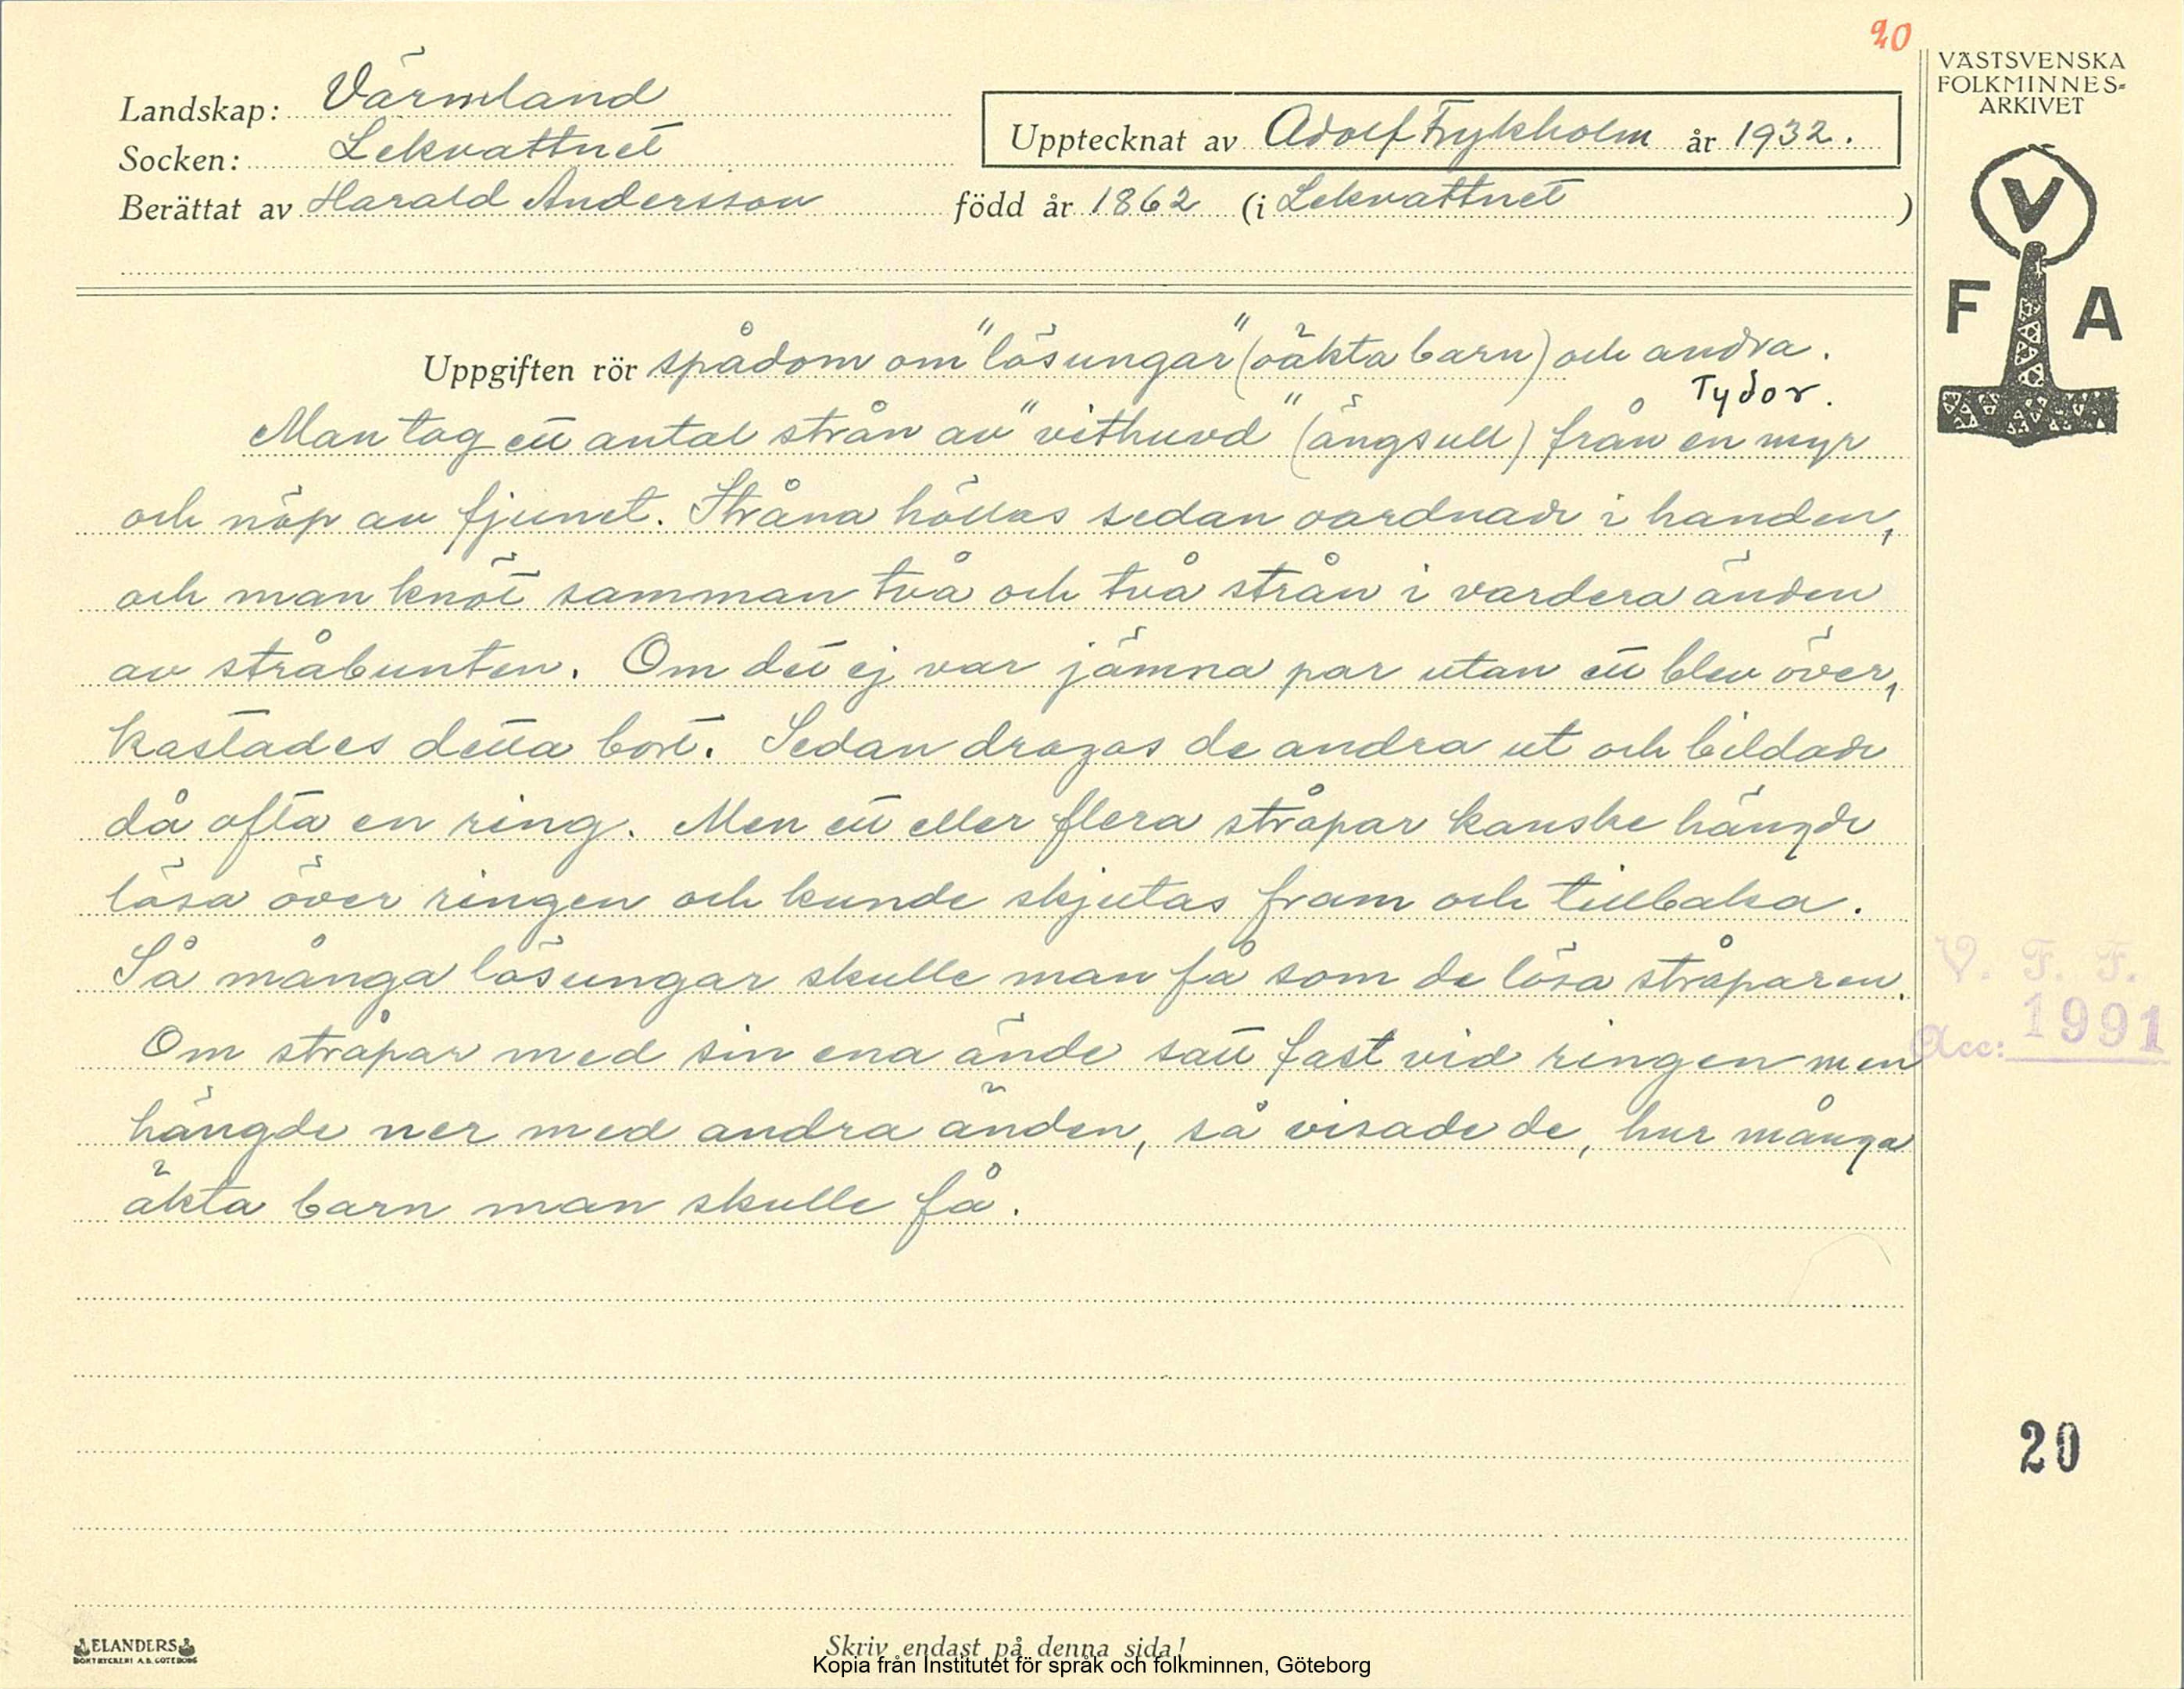 20
VÄSTSVENSKA
FOLKMINNES=
ARKIVET
V
F A
Landskap: Värmland
Socken: Lekvattnet
Upptecknat av Adolf Frykholm år 1932.
Berättat av Harald Andersson född år 1862 (i Lekvattnet )
Uppgiften rör spådom om "lösungar" (oäkta barn) och andra.
Tydor.
Man tog ett antal strån av "vithuvd" (ängsull) från en myr
och nöp av fjunet. Stråna höllos sedan oordnade i handen,
och man knöt samman två och två strån i vardera änden
av stråbunten. Om det ej var jämna par utan ett blev över,
kastades detta bort. Sedan drogos de andra ut och bildade
då ofta en ring. Men ett eller flera stråpar kanske hängde
lösa över ringen och kunde skjutas fram och tillbaka.
Så många lösungar skulle man få som de lösa stråparen.
Om stråpar med sin ena ände satt fast vid ringen men
hängde ner med andra änden, så visade de, hur många
äkta barn man skulle få.
V. F. F.
Acc: 1991
20
ELANDERS
BOKTRYCKERI A.B. GÖTEBORG
Skriv endast på denna sida!
Kopia från Institutet för språk och folkminnen, Göteborg